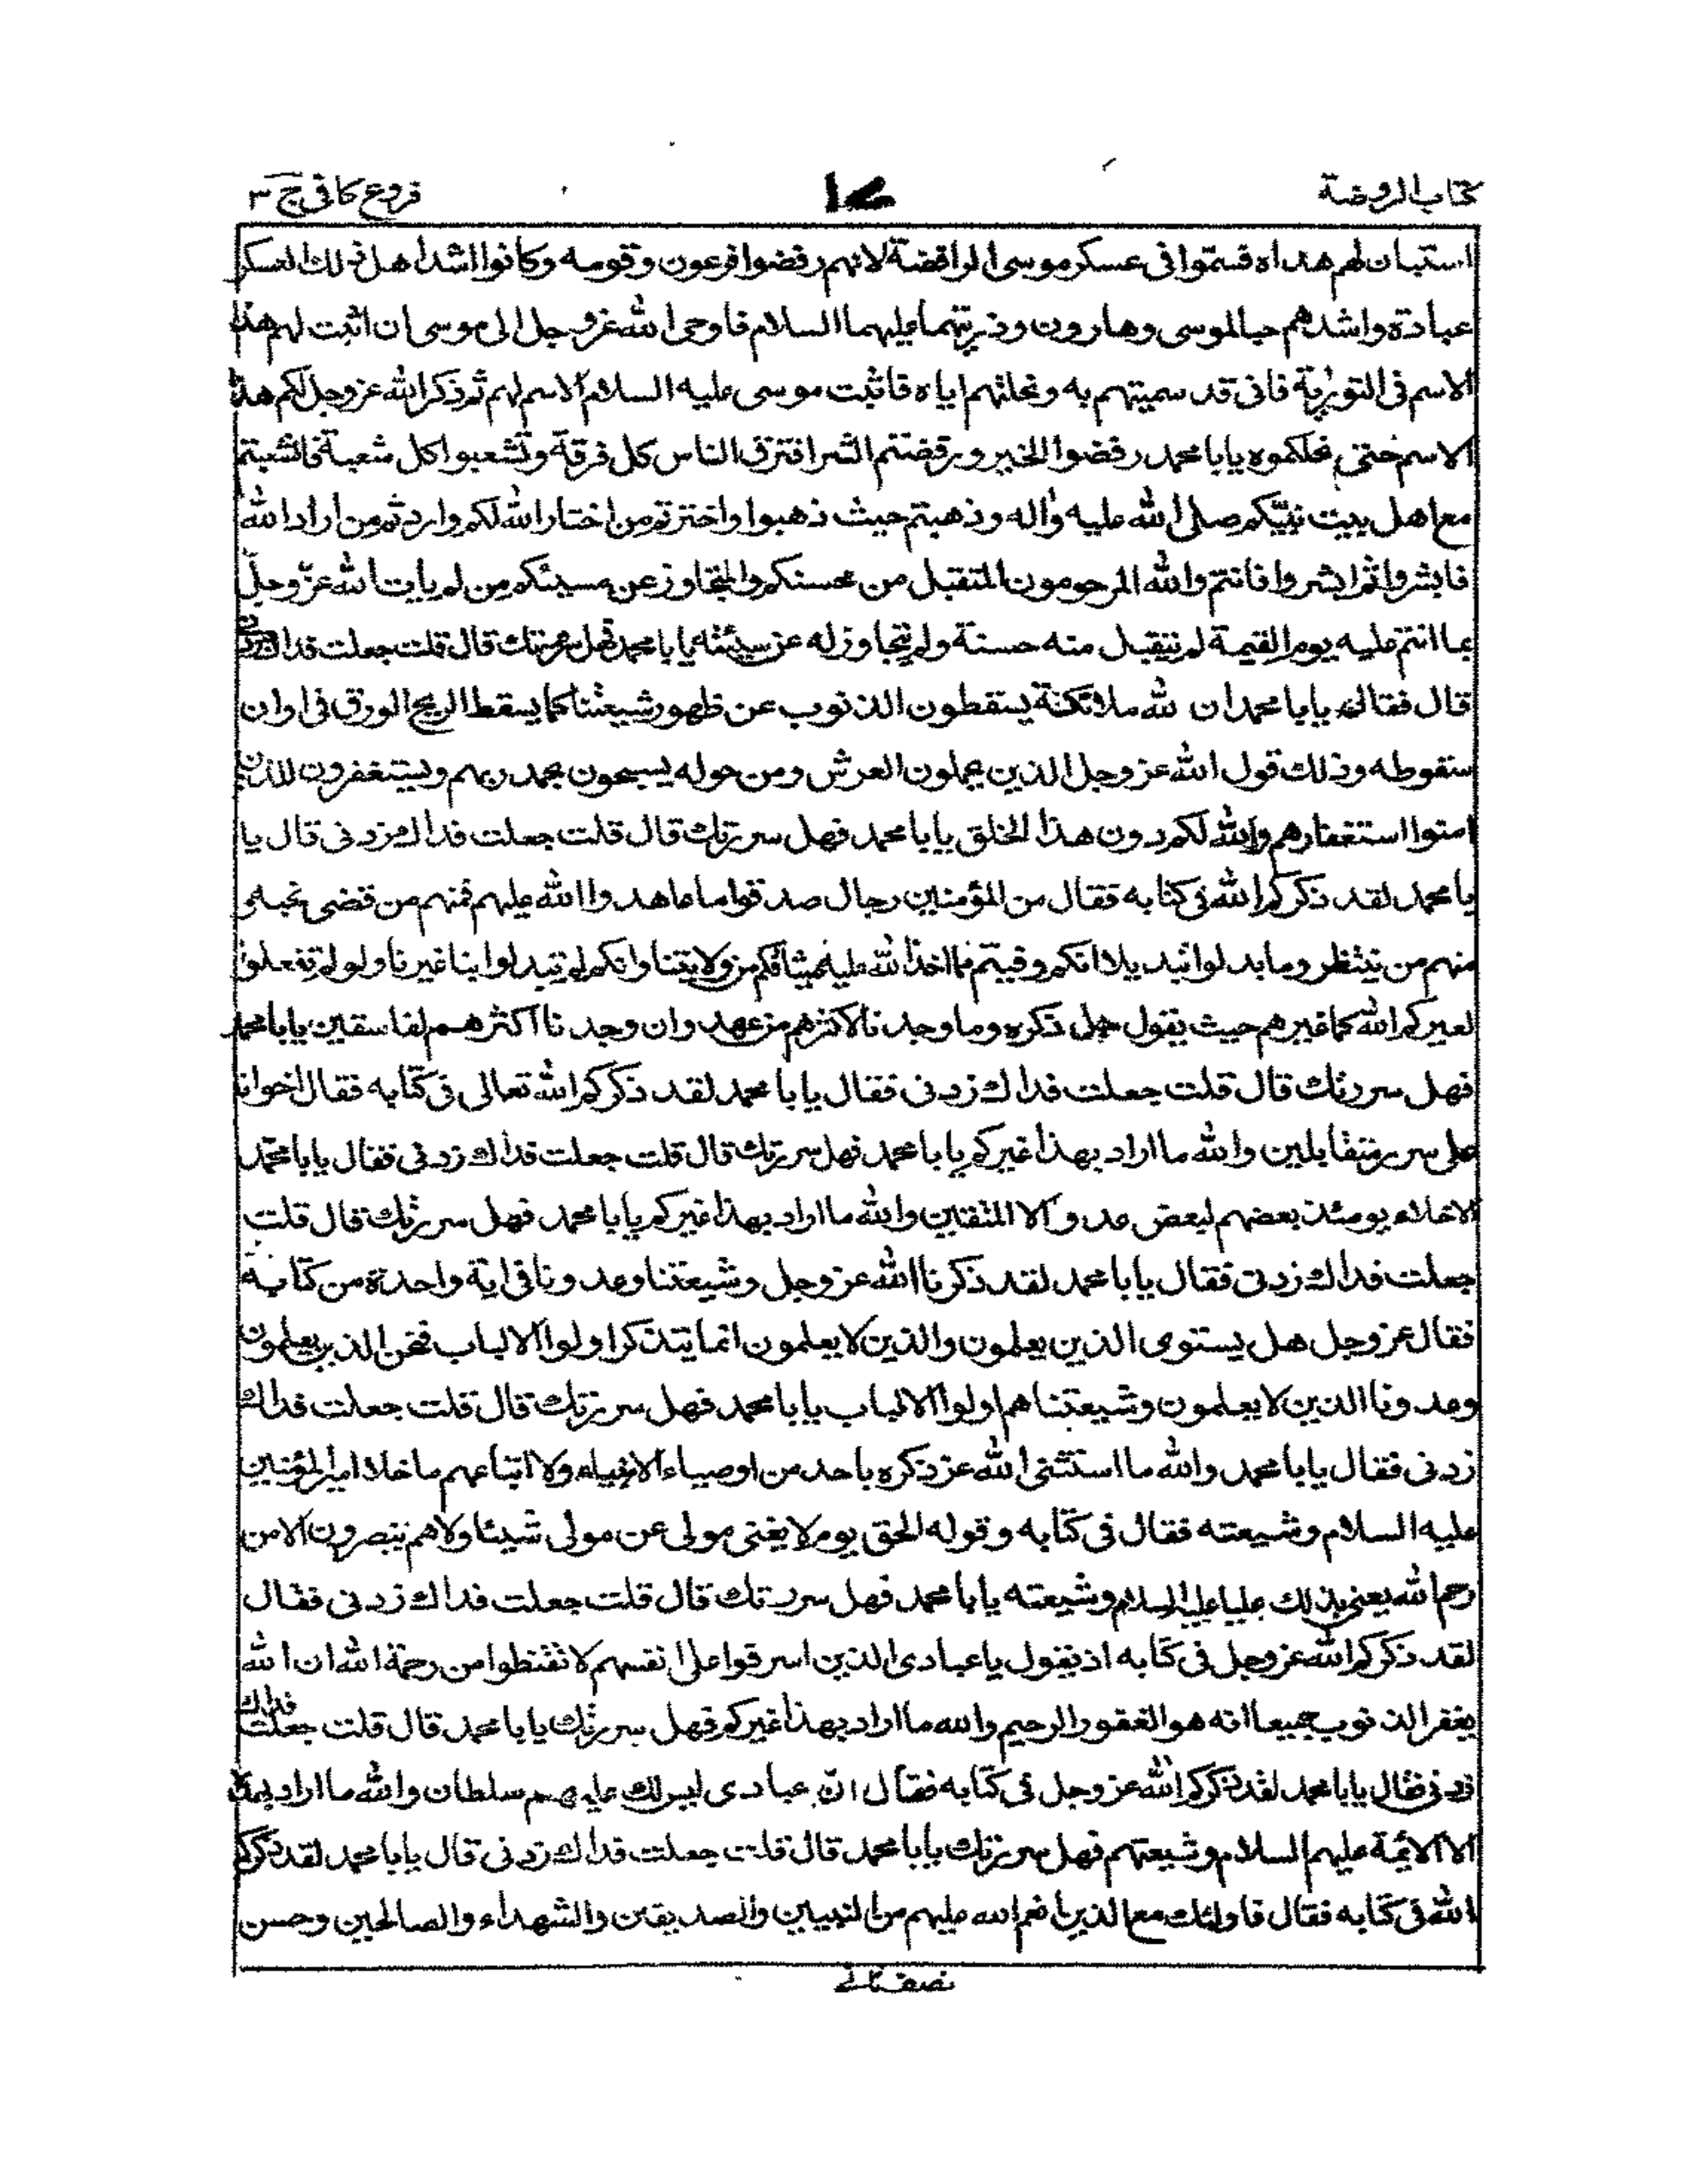 كتاب الروضة
فروع كافى ج ٣
استبان لهم هداه فسموا فى عسكر موسى الرافضة لانهم رفضوا فرعون وقومه وكانوا اشد اهل ذلك العسكر
عبادة واشدهم حبا لموسى وهارون وذريتهما عليهما السلام فاوحى الله عز وجل الى موسى ان اثبت لهم هذا
الاسم فى التورية فانى قد سميتهم به ونحلتهم اياه فاثبت موسى عليه السلام الاسم لهم ثم ذكر الله عز وجل لكم هذا
الاسم حتى نحلكموه يا با محمد رفضوا الخير ورفضتم الشر افترق الناس كل فرقة وتشعبوا كل شعبة فانشعبتم
مع اهل بيت نبيّكم صلى الله عليه واله وذهبتم حيث ذهبوا واخترتم من اختار الله لكم واردتم من اراد الله
فابشروا ثم ابشروا فانتم والله المرحومون المتقبل من محسنكم والمتجاوز عن مسيئكم من لم يات الله عزّ وجلّ
بما انتم عليه يوم القيمة لم يتقبل منه حسنة ولم يتجاوز له عن سيئة يا با محمد فهل سررتك قال قلت جعلت فداك زدنى
قال فقال يا با محمد ان لله ملائكة يسقطون الذنوب عن ظهور شيعتنا كما يسقط الريح الورق فى اوان
سقوطه وذلك قول الله عز وجل الذين يحملون العرش ومن حوله يسبحون بحمد ربهم ويستغفرون للذين
امنوا استغفارهم والله لكم دون هذا الخلق يا با محمد فهل سررتك قال قلت جعلت فداك زدنى قال يا
با محمد لقد ذكركم الله فى كتابه فقال من المؤمنين رجال صدقوا ما عاهدوا الله عليهم فمنهم من قضى نحبه و
منهم من ينتظر وما بدلوا تبديلا انكم وفيتم بما اخذ الله عليه ميثاقكم من ولايتنا وانكم لم تبدلوا بنا غيرنا ولو لم تفعلوا
لعيركم الله كما غيرهم حيث يقول جل ذكره وما وجدنا لاكثرهم من عهد وان وجدنا اكثرهم لفاسقين يا با محمد
فهل سررتك قال قلت جعلت فداك زدنى فقال يا با محمد لقد ذكركم الله تعالى فى كتابه فقال اخوانا
على سرر متقابلين والله ما اراد بهذا غيركم يا با محمد فهل سررتك قال قلت جعلت فداك زدنى فقال يا با محمّد
الاخلاء يومئذ بعضهم لبعض عدو الا المتقين والله ما اراد بهذا غيركم يا با محمد فهل سررتك قال قلت
جعلت فداك زدنى فقال يا با محمد لقد ذكرنا الله عز وجل وشيعتنا وعدونا فى اية واحدة من كتابه
فقال عز وجل هل يستوى الذين يعلمون والذين لا يعلمون انما يتذكر اولوا الالباب فنحن الذين يعلمون
وعدونا الذين لا يعلمون وشيعتنا هم اولوا الالباب يا با محمد فهل سررتك قال قلت جعلت فداك
زدنى فقال يا با محمد والله ما استثنى الله عز ذكره باحد من اوصياء الانبياء ولا اتباعهم ما خلا امير المؤمنين
عليه السلام وشيعته فقال فى كتابه وقوله الحق يوم لا يغنى مولى عن مولى شيئا ولا هم ينصرون الا من
رحم الله يعنى بذلك عليا عليه السلام وشيعته يا با محمد فهل سررتك قال قلت جعلت فداك زدنى فقال
لقد ذكركم الله عز وجل فى كتابه اذ يقول يا عبادى الذين اسرفوا على انفسهم لا تقنطوا من رحمة الله ان الله
يغفر الذنوب جميعا انه هو الغفور الرحيم والله ما اراد بهذا غيركم فهل سررتك يا با محمد قال قلت جعلت فداك
زدنى فقال يا با محمد لقد ذكركم الله عز وجل فى كتابه فقال انّ عبادى ليس لك عليهم سلطان والله ما اراد بهذا
الا الائمة عليهم السلام وشيعتهم فهل سررتك يا با محمد قال قلت جعلت فداك زدنى قال يا با محمد لقد ذكركم
الله فى كتابه فقال فاولئك مع الذين انعم الله عليهم من النبيين والصديقين والشهداء والصالحين وحسن